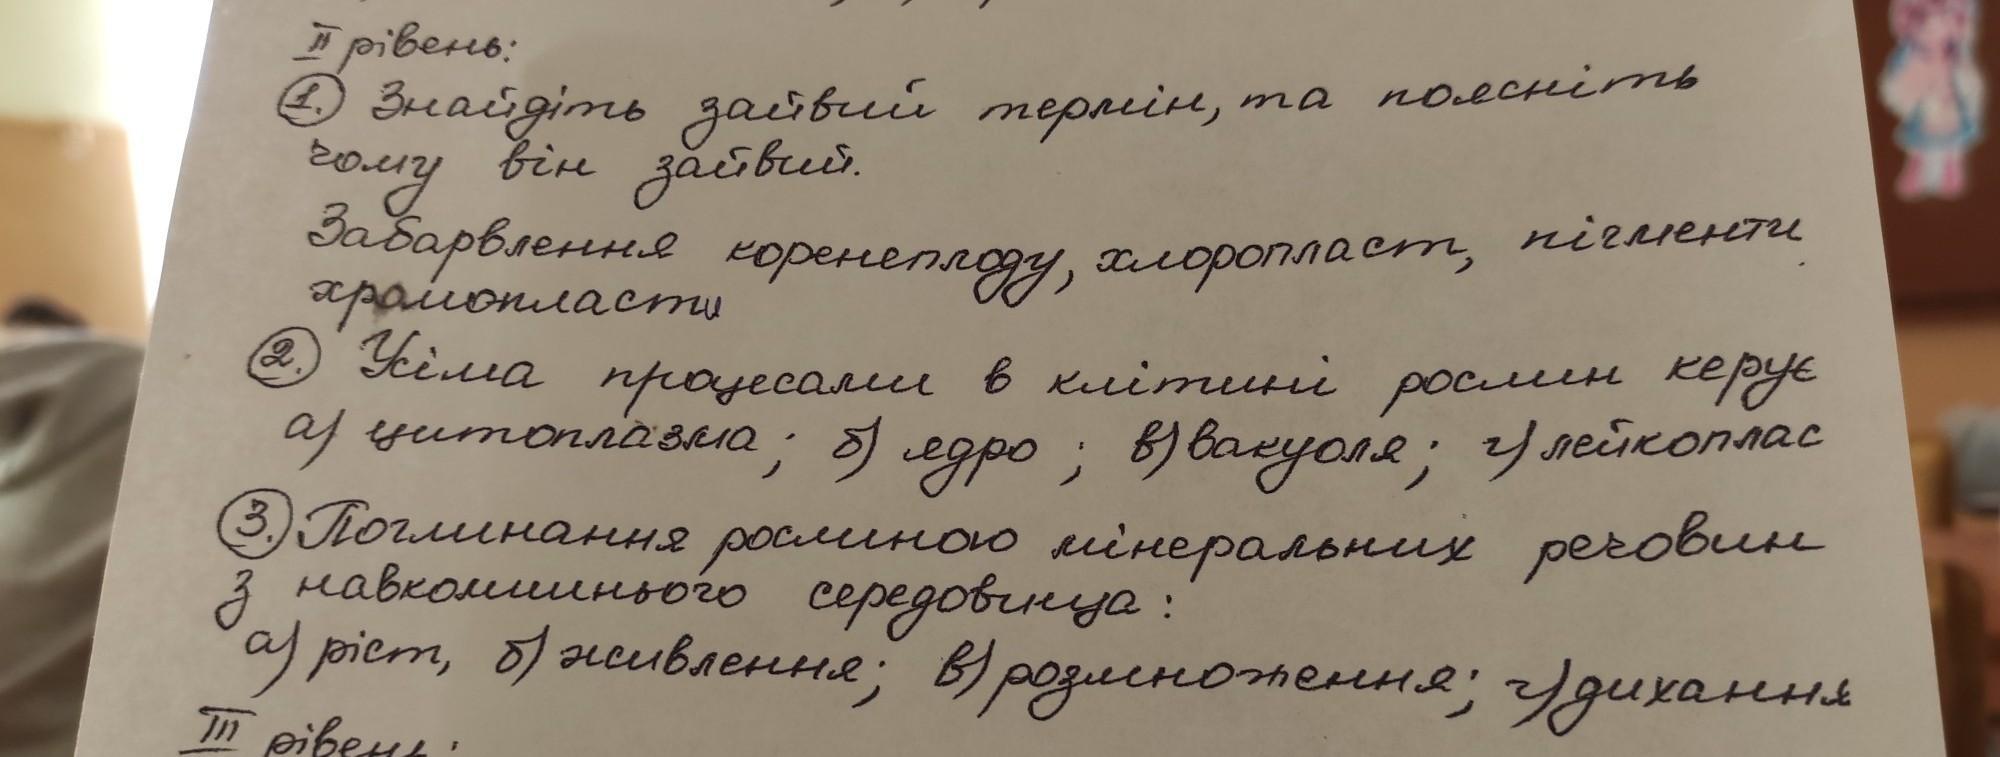 II рівень:
1. Знайдіть зайвий термін, та поясніть
чому він зайвий.
Забарвлення коренеплоду, хлоропласт, пігменти
хромопласти
2. Усіма процесами в клітині рослин керує
а) цитоплазма; б) ядро; в) вакуоля; г) лейкоплас
3. Поглинання рослиною мінеральних речовин
з навколишнього середовища:
а) ріст, б) живлення; в) розмноження; г) дихання
III рівень: